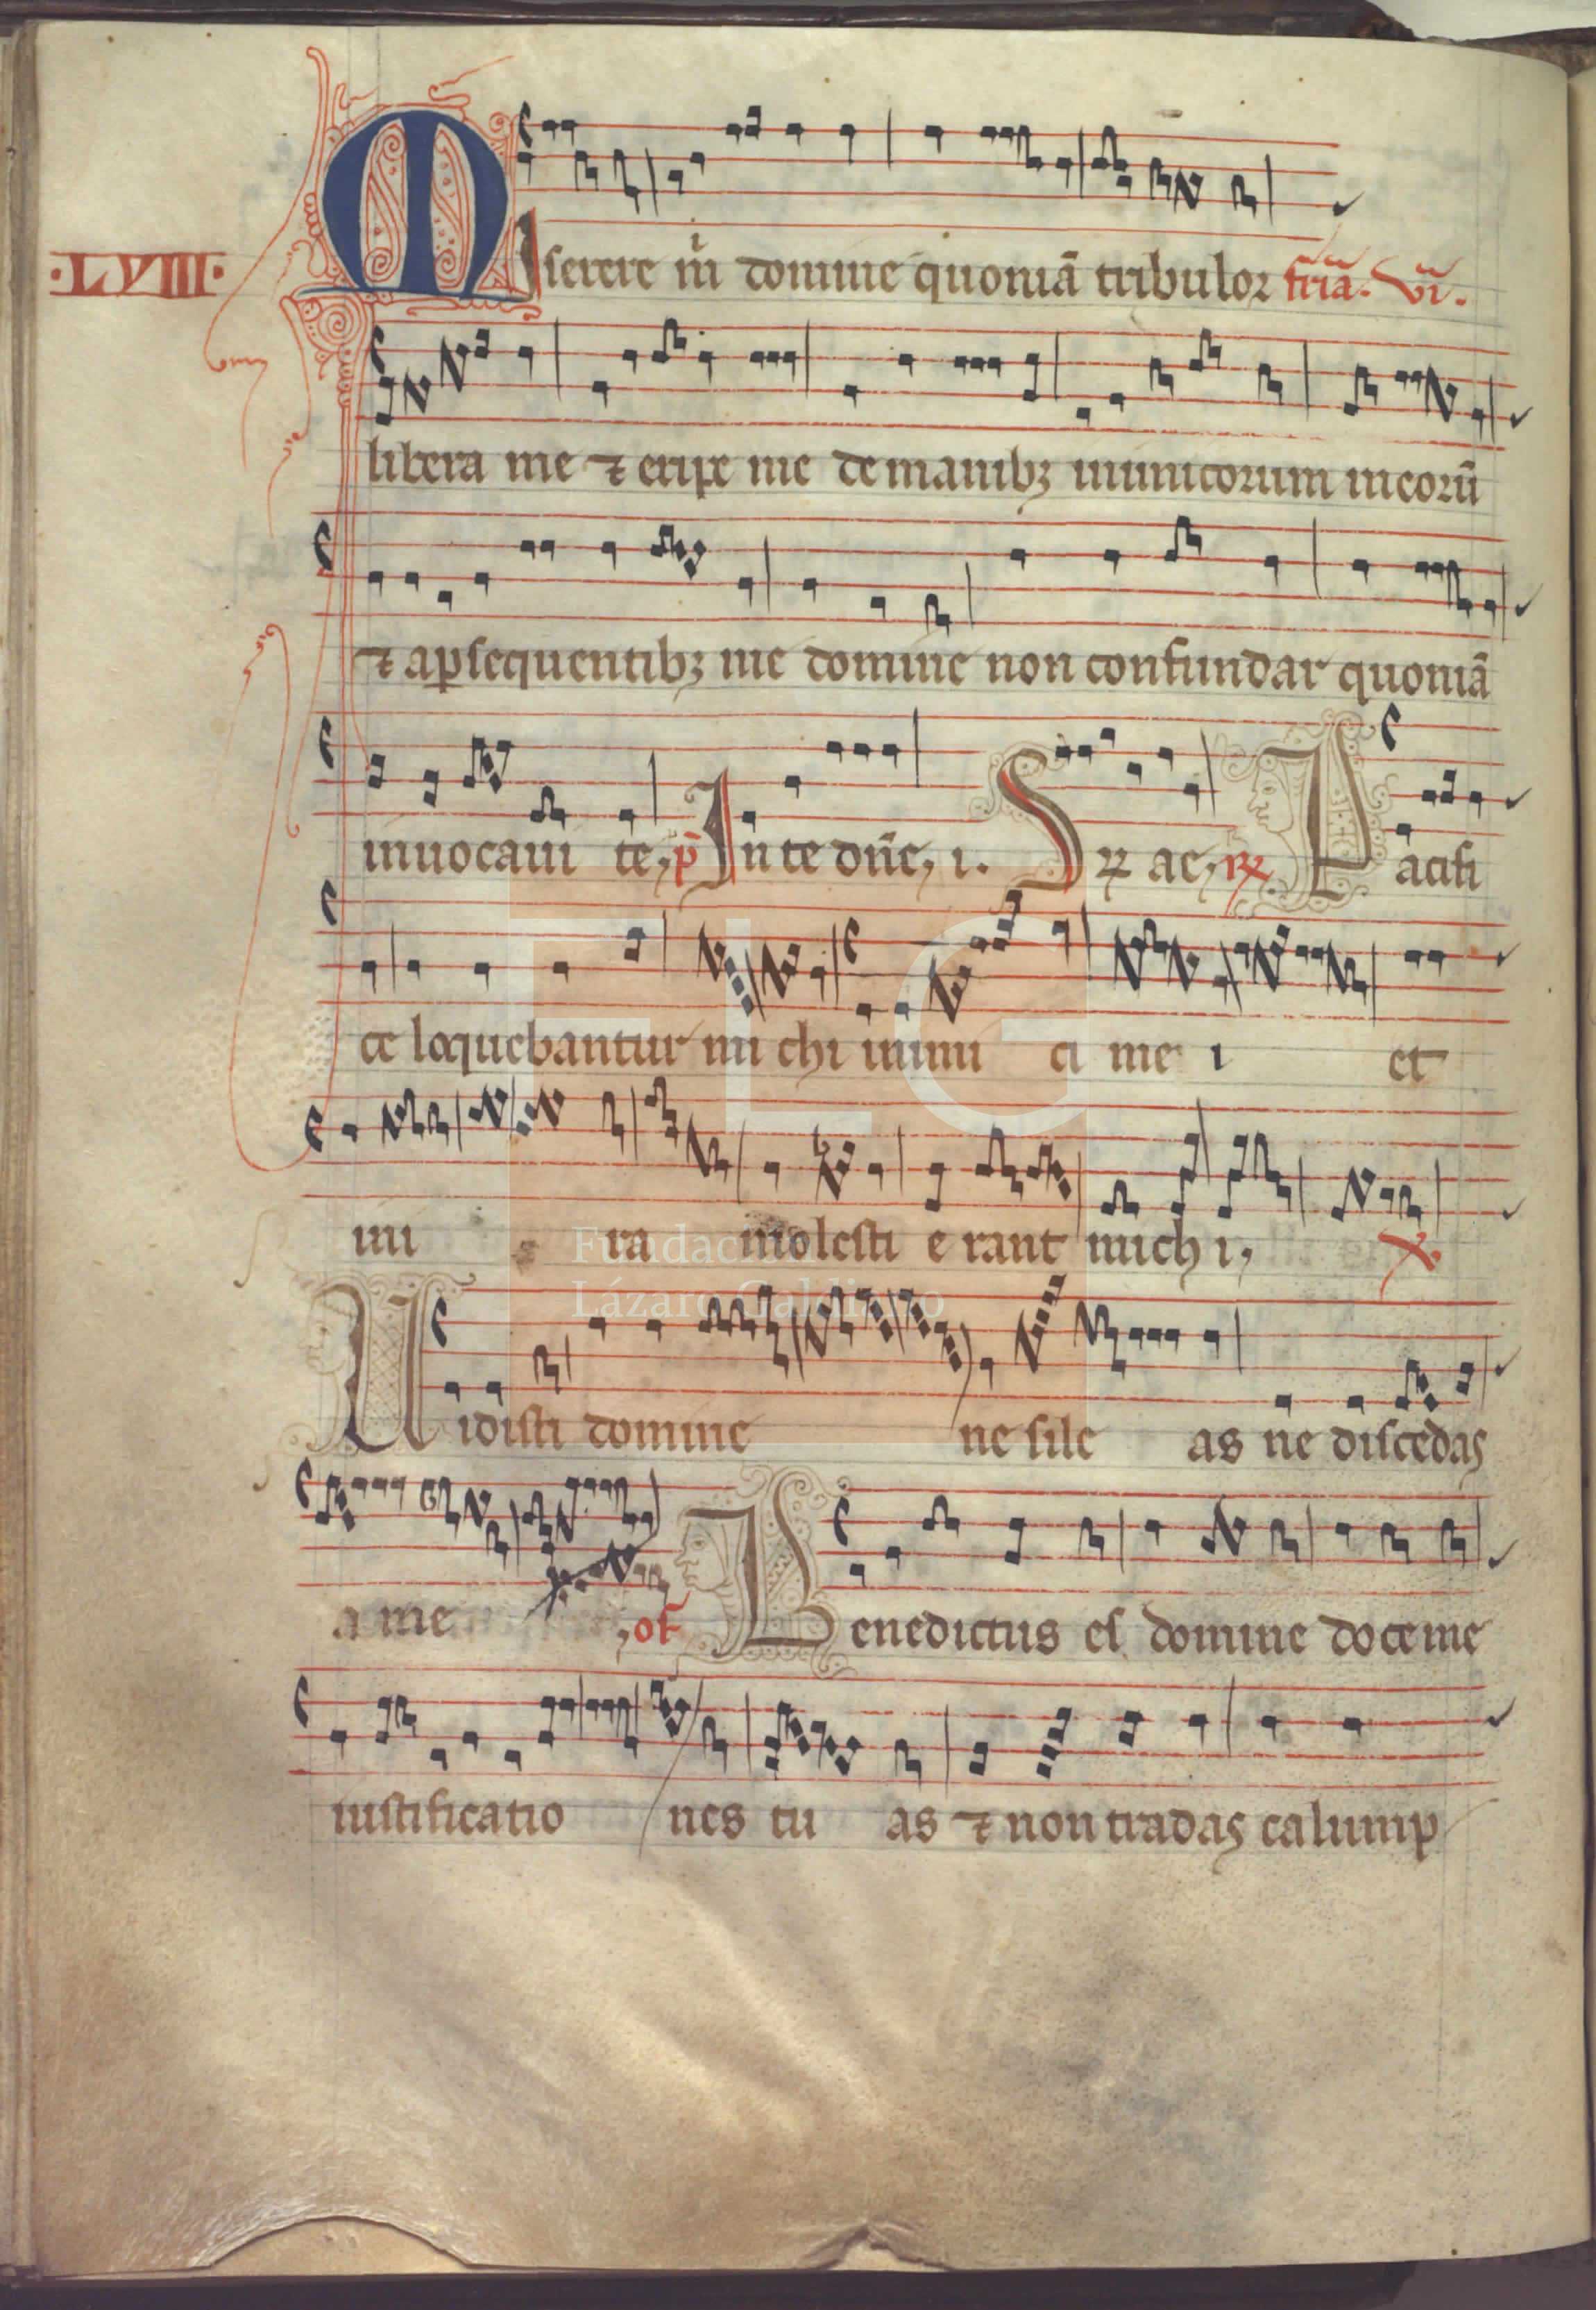 ·LVIII·
MIserere m̄ domine quoniā tribulor fr̄ia. vi.
libera me ⁊ eripe me de manibꝫ inimicorum meorū
⁊ a ꝑsequentibꝫ me domine non confundar quoniā
inuocaui te, p̄ In te dn̄e, i. Sꝝ ac, ꝶ Pacifi
ce loquebantur mi chi inimi ci me i et
in i ra molesti e rant mich i, ℣.
Uidisti domine ne sile as ne discedas
a me , of Benedictus es domine doce me
iustificatio nes tu as ⁊ non tradas calump
Fundación
Lázaro Galdiano
FLG